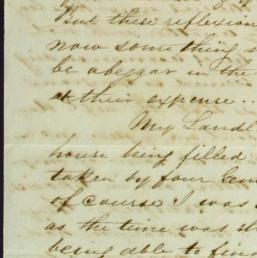 But these reflexion
now something
be a beggar in the
at their expense..
My Landl
house being filled
taken by four Gen
of course I was
as the time was sh
being able to find